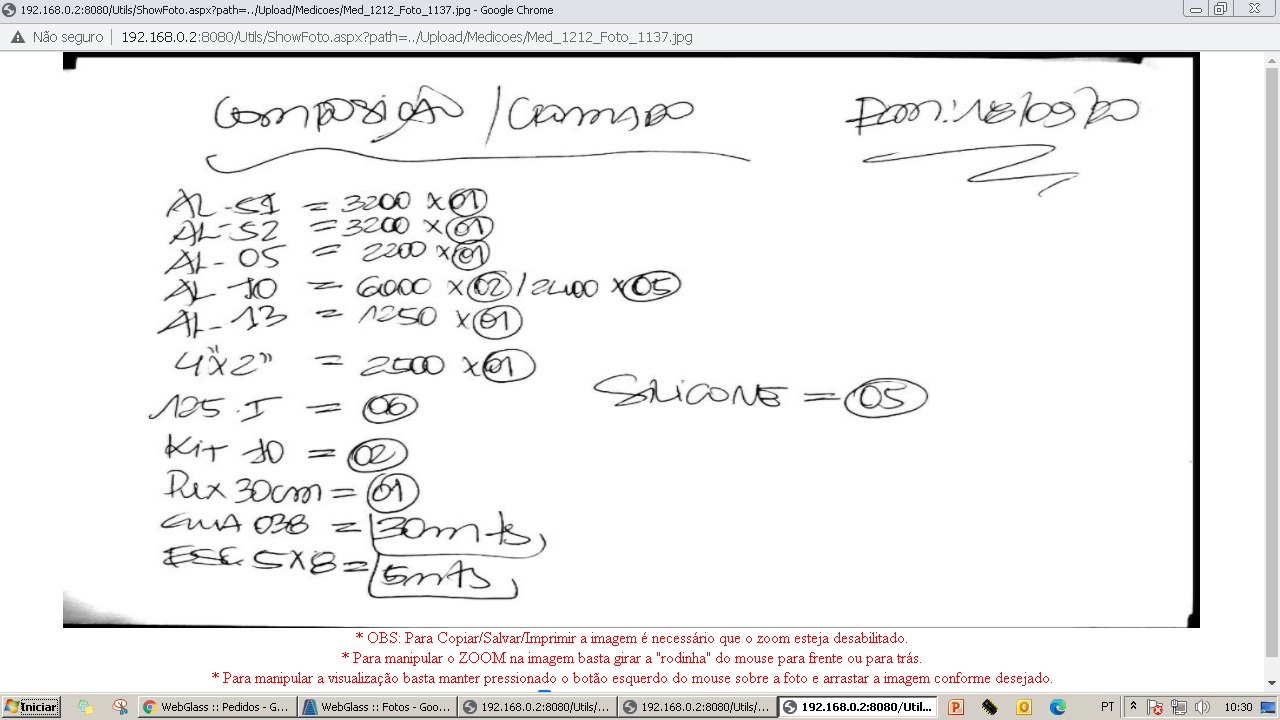 192.168.0.2:8080/Utils/ShowFoto.aspx?path=../Upload/Medicoes/Med_1212_Foto_1137.jpg - Google Chrome
Não seguro | 192.168.0.2:8080/Utils/ShowFoto.aspx?path=../Upload/Medicoes/Med_1212_Foto_1137.jpg
COMPOSIÇÃO /
18/09/20
AL-51 = 3200 x 01
AL-52 = 3200 x 01
AL-05 = 2200 x 01
AL 10 = 6000 x 02 / 2400 x 05
AL-13 = 1250 x 01
4"x2" = 2500 x 01
SILICONE = 05
125.I = 06
Kit 10 = 02
30cm = 01
038 = 30mts,
ESC. 5x8 = 5mts,
* OBS: Para Copiar/Salvar/Imprimir a imagem é necessário que o zoom esteja desabilitado.
* Para manipular o ZOOM na imagem basta girar a "rodinha" do mouse para frente ou para trás.
* Para manipular a visualização basta manter pressionado o botão esquerdo do mouse sobre a foto e arrastar a imagem conforme desejado.
Iniciar WebGlass :: Pedidos - G... WebGlass :: Fotos - Goo... 192.168.0.2:8080/Utils/... 192.168.0.2:8080/Utils/... 192.168.0.2:8080/Util... PT 10:30